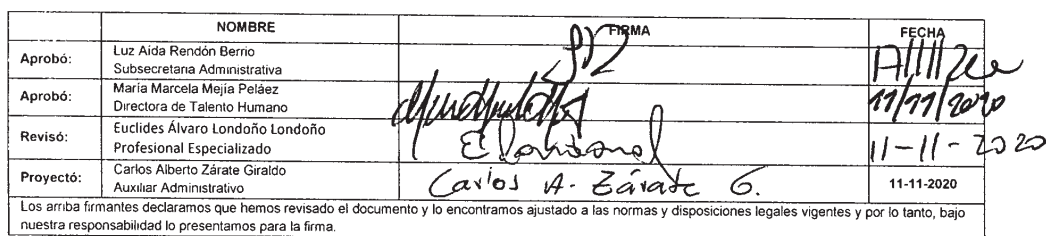 NOMBRE FIRMA FECHA
Aprobó: Luz Aida Rendón Berrio
Subsecretaria Administrativa
Aprobó: María Marcela Mejía Peláez 11/11/2020
Directora de Talento Humano
Revisó: Euclides Álvaro Londoño Londoño 11-11-2020
Profesional Especializado
Proyectó: Carlos Alberto Zárate Giraldo Carlos A. Zárate G. 11-11-2020
Auxiliar Administrativo
Los arriba firmantes declaramos que hemos revisado el documento y lo encontramos ajustado a las normas y disposiciones legales vigentes y por lo tanto, bajo
nuestra responsabilidad lo presentamos para la firma.